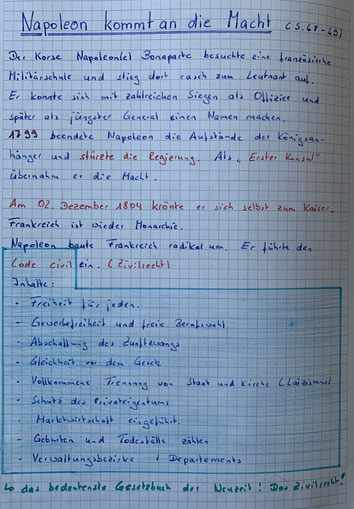 Napoleon kommt an die Macht (S. 68-69)
Der Korse Napoleon(e) Bonaparte besuchte eine französische
Militärschule und stieg dort rasch zum Leutnant auf.
Er konnte sich mit zahlreichen Siegen als Offizier und
später als jüngster General einen Namen machen.
1799 beendete Napoleon die Aufstände der Königsan-
hänger und stürzte die Regierung. Als „Erster Konsul"
übernahm er die Macht.
Am 02. Dezember 1804 krönte er sich selbst zum Kaiser.
Frankreich ist wieder Monarchie.
Napoleon baute Frankreich radikal um. Er führte den
Code civil ein. (Zivilrecht)
Inhalte:
- Freiheit für jeden.
- Gewerbefreiheit und freie Berufswahl
- Abschaffung des Zunftzwangs
- Gleichheit vor dem Gesetz
- Vollkommene Trennung von Staat und Kirche (Laizismus)
- Schutz des Privateigentums
- Marktwirtschaft eingeführt.
- Geburten und Todesfälle zählen
- Verwaltungsbezirke / Departements
↳ das bedeutenste Gesetzbuch der Neuzeit! Das Zivilrecht!